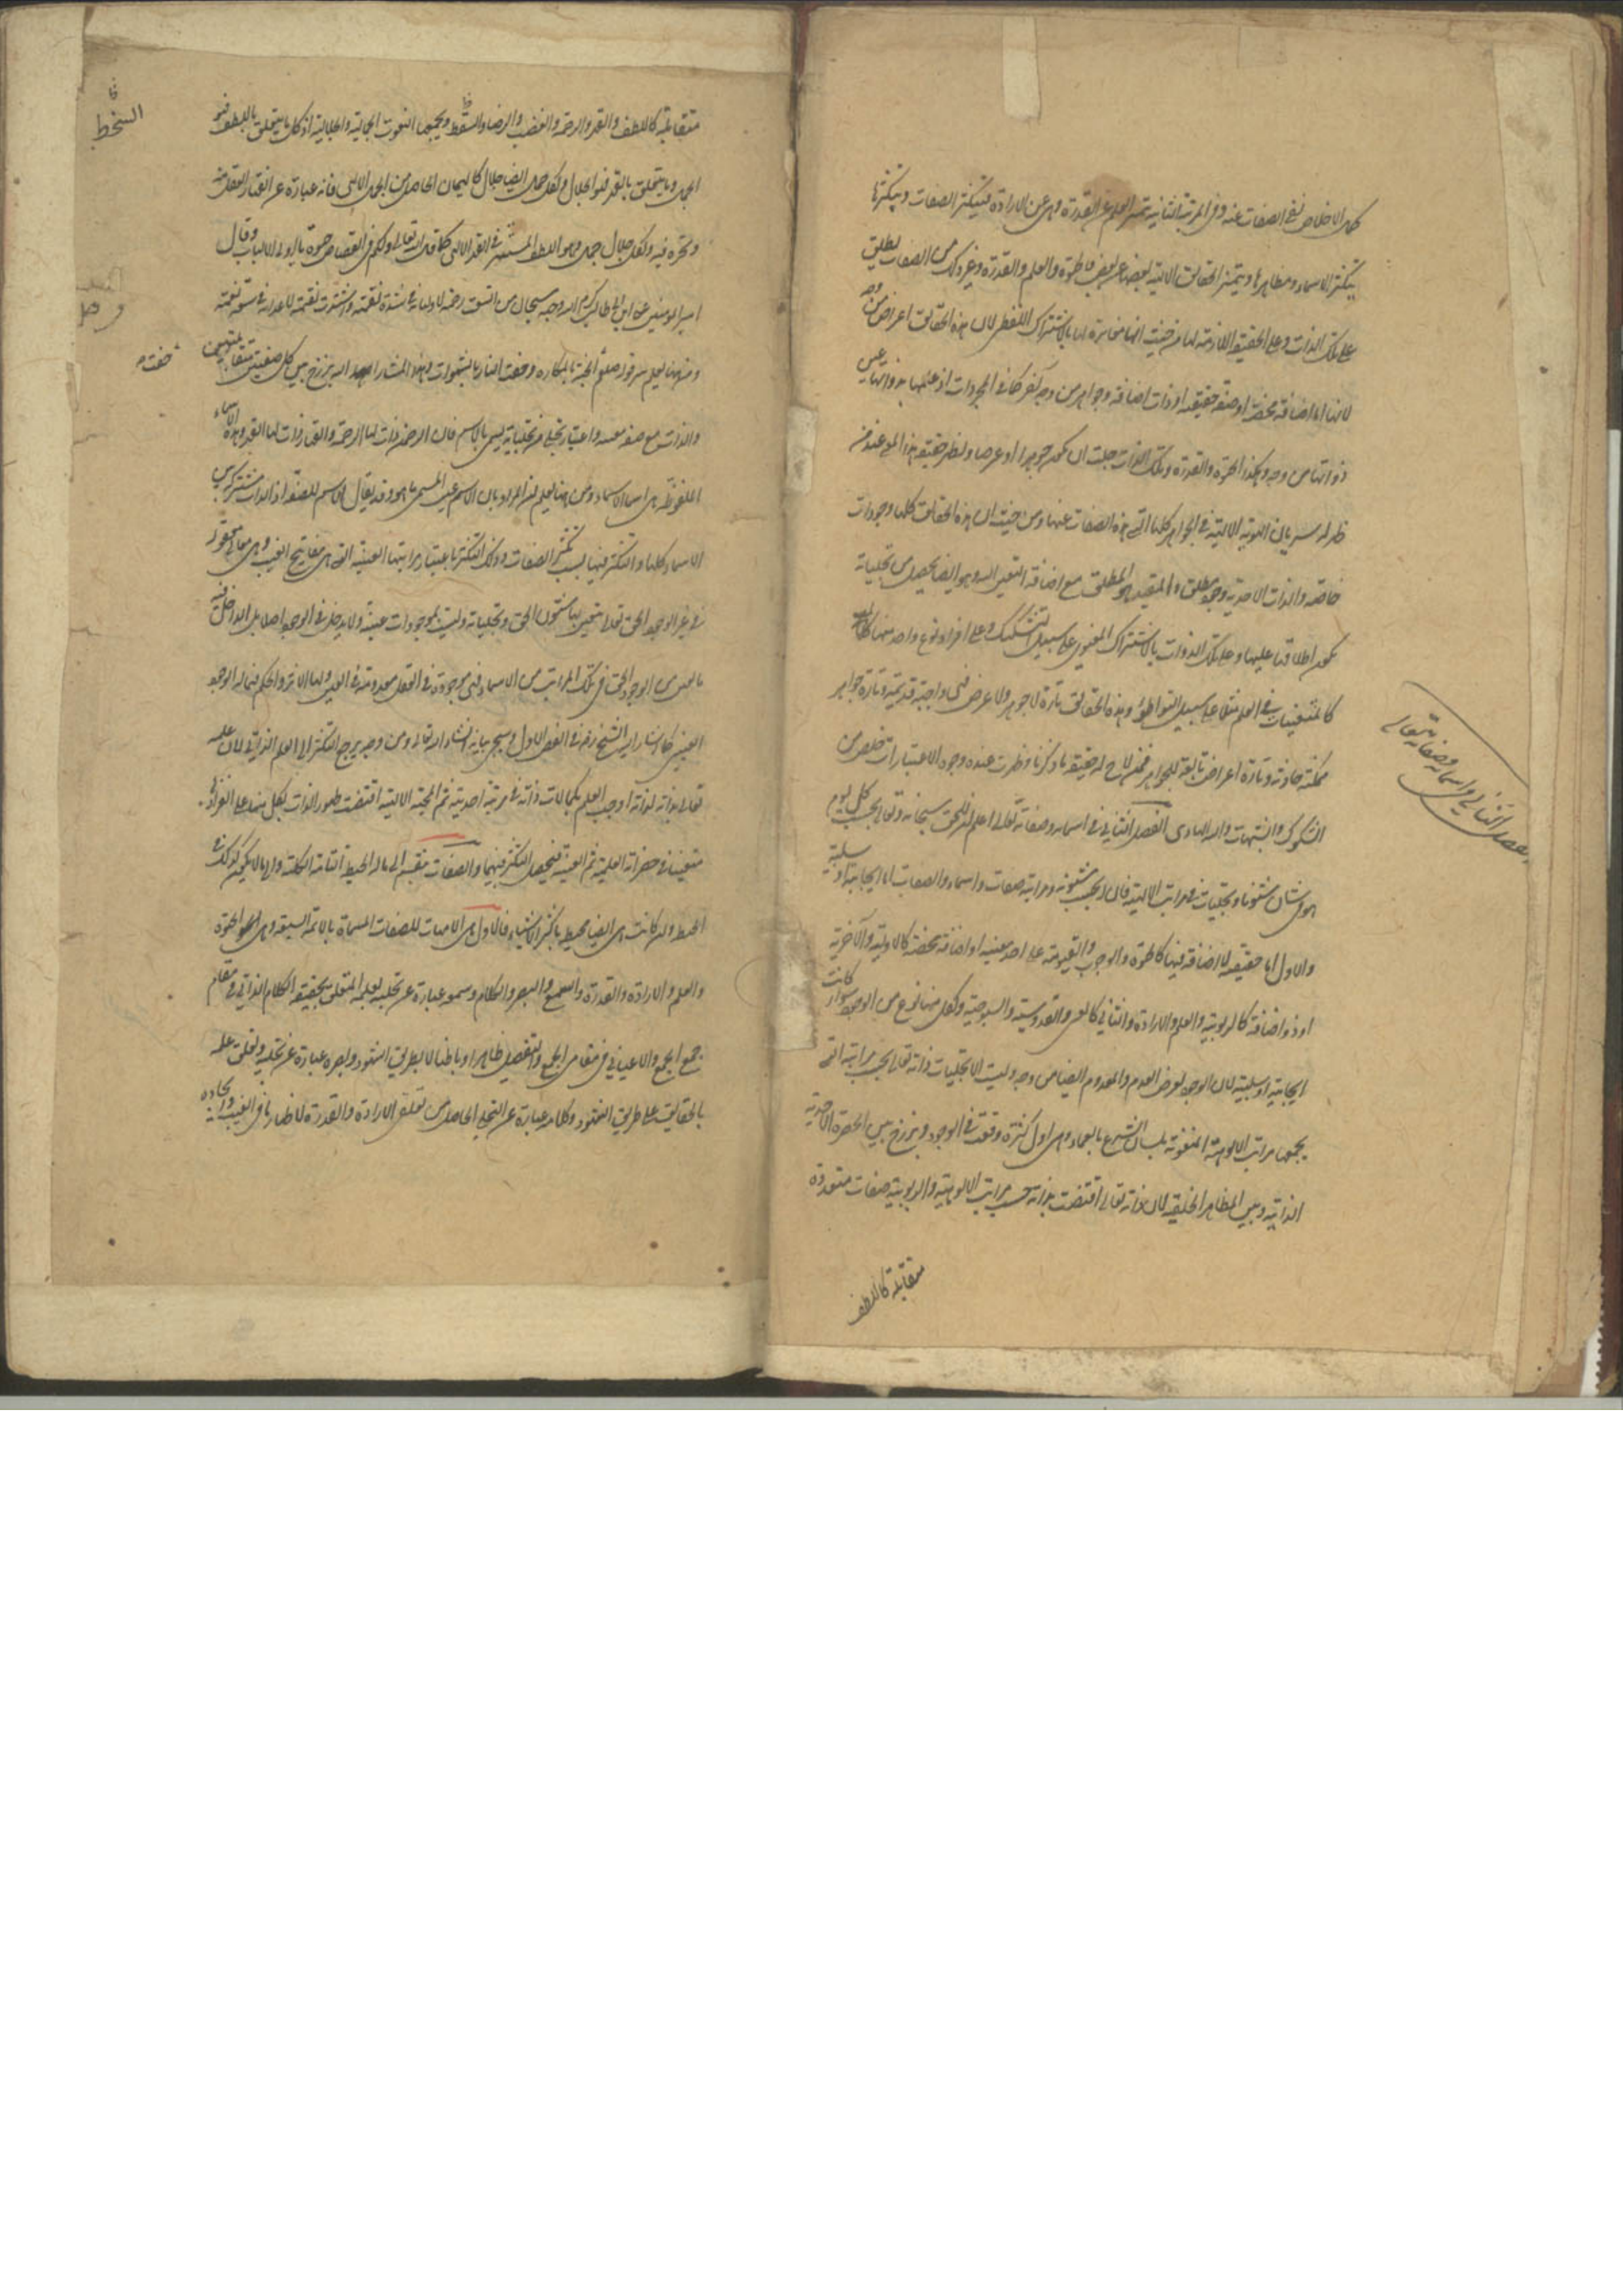 كمال الاخلاص نفي الصفات عنه وفي المرتبة الثانية يتميز العلم عن القدرة وهي عن الارادة فيتكثر الصفات وبتكثرها
يتكثر الاسماء ومظاهرها ويتميز الحقايق الالهية بعضها عن بعض فالحيوة والعلم والقدرة وغير ذلك من الصفات يطلق
على تلك الذات وعلى الحقيقة اللازمة لها من حيث انها مغايرة لها بالاشتراك اللفظي لان هذه الحقايق اعراض من وجه
لانها اما اضافة محضة او صفة حقيقية او ذات اضافة وجواهر من وجه آخر كما في المجردات اذ علمها بذواتها عين
ذواتها من وجه وهكذا الحيوة والقدرة وتلك الذات جلت ان يكون جوهرا او عرضا ويظهر حقيقة هذا المعنى عند من
ظهر له سريان الهوية الالهية في الجواهر كلها التي هذه الصفات عينها ومن حيث ان هذه الحقايق كلها وجودات
خاصة والذات الاحدية وجود مطلق والمقيد هو المطلق مع اضافة التعين اليه وهو ايضا يحصل من تجلياته
يكون اطلاقها عليها وعلى تلك الذوات بالاشتراك المعنوي على سبيل التشكيك وعلى افراد نوع واحد منها
كالمتعينات في العلم مثلا على سبيل التواطؤ وهذه الحقايق تارة لا جوهر ولا عرض فهي واجبة قديمة وتارة جواهر
ممكنة حادثة وتارة اعراض تابعة للجواهر فمن لاح له حقيقة ما ذكرنا وظهرت عنده وجوه الاعتبارات خلص من
الشكوك والشبهات والله الهادي الفصل الثاني في اسمائه وصفاته تعالى اعلم ان للحق سبحانه وتعالى بحسب كل يوم
هو في شان شئونا وتجليات في مراتب الالهية فان له بحسب شئونه ومراتبه صفات واسماء والصفات اما ايجابية او سلبية
والاول اما حقيقية لا اضافة فيها كالحيوة والوجوب والقيومية على احد معنييه او اضافة محضة كالاولية والآخرية
او ذو اضافة كالربوبية والعلم والارادة والثاني كالغنى والقدوسية والسبوحية ولكل منها نوع من الوجود سواء كانت
ايجابية او سلبية لان الوجود يعرض العدم والمعدوم ايضا من وجه وليست الا تجليات ذاته تعالى بحسب مراتبه التي
يجمعها مراتب الالوهية المنعوتة بلسان الشرع بالعماء وهي اول كثرة وقعت في الوجود وبرزخ بين الحضرة الاحدية
الذاتية وبين المظاهر الخلقية لان ذاته تعالى اقتضت بذاته حسب مراتب الالوهية والربوبية صفات متعددة
متقابلة كاللطف
الفصل الثاني في اسمائه وصفاته تعالى
متقابلة كاللطف والقهر والرحمة والغضب والرضاء والسقط ويجمعها النعوت الجمالية والجلالية اذ كل ما يتعلق باللطف فهو
الجمال وما يتعلق بالقهر فهو الجلال ولكل جمال ايضا جلال كالهيمان الحاصل من الجمال الالهي فانه عبارة عن انقهار العقل منه
وتحيره فيه ولكل جلال جمال وهو اللطف المستتر في القهر الالهي كما قال الله تعالى ولكم في القصاص حيوة يا اولي الالباب وقال
امير المؤمنين علي ابن ابي طالب كرم الله وجهه سبحان من اتسعت رحمته لاوليائه في شدة نقمته واشتدت نقمته لاعدائه في سعة نعمته
ومن هنا يعلم سر قوله صلعم الجنة بالمكاره وحفت النار بالشهوات وهذا المشار اليه برزخ بين كل صفتين متقابلتين
والذات مع صفة معينة واعتبار تجلي من تجلياته يسمى بالاسم فان الرحمن ذات لها الرحمة والقهار ذات لها القهر وهذه الاسماء
الملفوظة هي اسماء الاسماء ومن هنا يعلم ان المراد بان الاسم عين المسمى ما هو وقد يقال الاسم للصفة اذ الذات مشترك بين
الاسماء كلها والتكثر فيها بسبب تكثر الصفات وذلك التكثر باعتبار مراتبها الغيبية التي هي مفاتيح الغيب وهي معاني معقولة
في غيب الوجود الحق تعالى يتعين بها شئون الحق وتجلياته وليست بموجودات عينية ولا يدخل في الوجود اصلا بل الداخل فيه
ما تعين من الوجود الحق في تلك المراتب من الاسماء فهي موجودة في العقل معدومة في العين ولها الاثر والحكم فيما له الوجود
العيني كما اشار اليه الشيخ رضي في الفص الاول وسيجيء بيانه انشاء الله تعالى ومن وجه يرجع التكثر الى العلم الذاتي لان علمه
تعالى بذاته لذاته اوجب العلم بكمالات ذاته في مرتبة احديته ثم المحبة الالهية اقتضت ظهور الذات بكل منها على انفرادها
متعينا في حضرة العلمية ثم العينية فيحصل التكثر فيهما والصفات ينقسم الى ماله الحيطة التامة الكلية والى ما لا يكون كذلك في
الحيطة وان كانت هي ايضا محيطة باكثر الاشياء فالاول هي الامهات للصفات المسماة بالائمة السبعة وهي الحيوة
والعلم والارادة والقدرة والسمع والبصر والكلام وسمعه عبارة عن تجليه بعلمه المتعلق بحقيقة الكلام الذاتي في مقام
جمع الجمع والاعياني في مقامي الجمع والتفصيل ظاهرا وباطنا لا بطريق الشهود وبصره عبارة عن تجليه وتعلق علمه
بالحقايق على طريق الشهود وكلامه عبارة عن التجلي الحاصل من تعلق الارادة والقدرة لاظهار ما في الغيب وايجاده
السخط
حفت